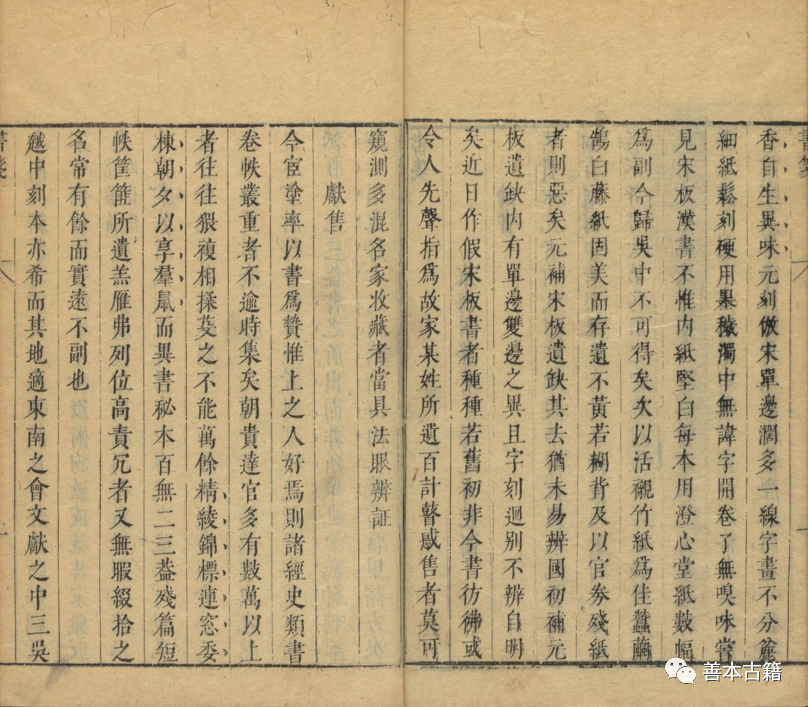 書箋
香自生異味元刻倣宋單邊濶多一線字畫不分麄
細紙鬆刻硬用墨穢濁中無諱字開卷了無嗅味嘗
見宋板漢書不惟內紙堅白每本用澄心堂紙數幅
爲副今歸吳中不可得矣次以活襯竹紙爲佳蠶繭
鵠白藤紙固美而存遺不黃若糊背及以官劵殘紙
者則惡矣元補宋板遺鈌其去猶未易辨國初補元
板遺鈌內有單邊雙邊之異且字刻迥别不辨自明
矣近日作假宋板書者種種若舊初非今書彷彿或
令人先聲指爲故家某姓所遺百計瞽惑售者莫可
窺測多混名家收藏者當具法眼辨証
獻售
今宦塗率以書爲贄惟上之人好焉則諸經史類書
卷帙叢重者不逾時集矣朝貴達官多有數萬以上
者往往猥複相揉芟之不能萬餘精綾錦標連窓委
棟朝夕以享羣鼠而異書秘本百無二三葢殘篇短
帙筐篚所遺羔雁弗列位高責冗者又無暇綴拾之
名常有餘而實遠不副也
越中刻本亦希而其地適東南之會文獻之中三吳
書箋
善本古籍